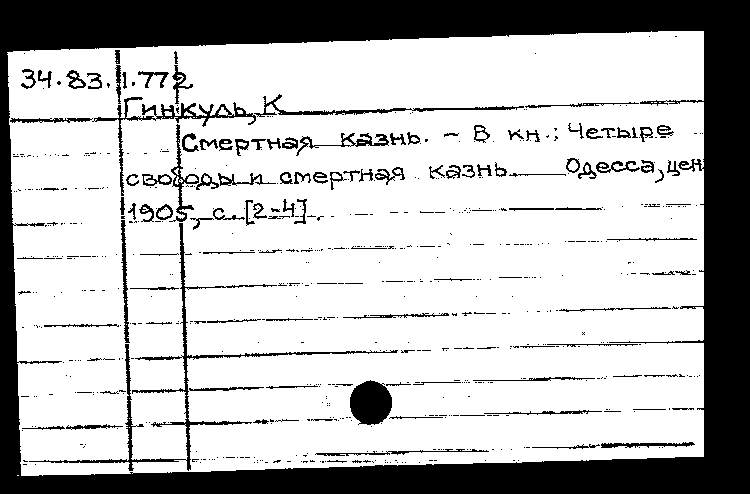 34.83.1.772
Гинкуль, К
Смертная казнь. - В кн.: Четыре
свободы и смертная казнь. Одесса, цен
1905, с. [2-4].